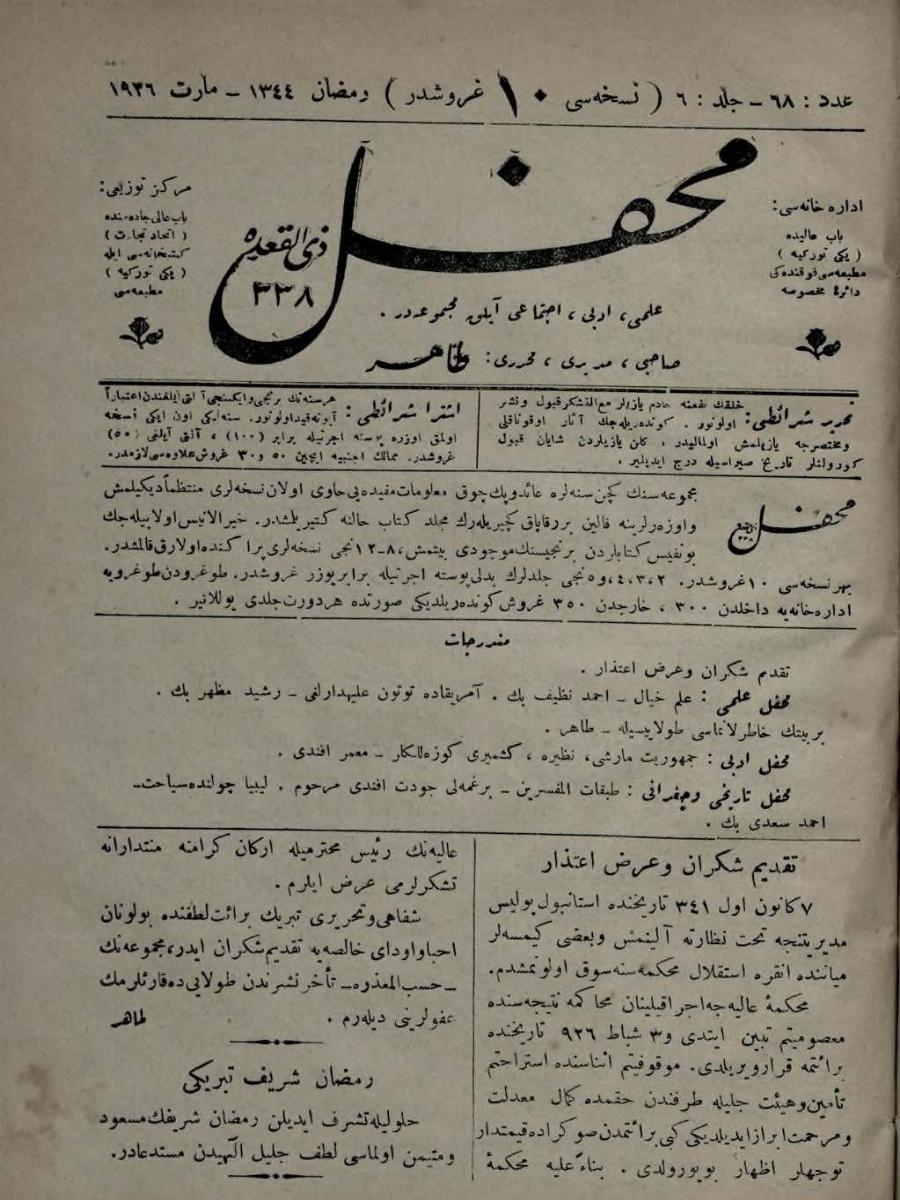 عدد : ٦٨ – جلد : ٦ ( نسخه‌سی ١٠ غروشدر ) رمضان ١٣٤٤ – مارت ١٩٢٦
اداره خانه‌سی :
باب عالیده
( یکی تورکیه )
مطبعه‌سی فوقنده‌کی
دائرۀ مخصوصه
محفل
ذی القعده
٣٣٨
مرکز توزیعی :
باب عالی جاده‌سنده
( اتحاد تجارت )
کتبخانه‌سی ایله
( یکی تورکیه )
مطبعه‌سی
علمی ، ادبی ، اجتماعی آیلق مجموعه‌در .
صاحبی ، مدیری ، محرری : طاهر
تحریر شرائطی : خلقك نفعنه خادم یازیلر مع‌التشکر قبول ونشر
اولونور . کوندریله‌جك آثار اوقوناقلی
ومختصرجه یازیلمش اولمالیدر ، کلن یازیلردن شایان قبول
کورولنلر تاریخ صیراسیله درج ایدیلیر .
اشترا شرائطی : هرسنه‌نك برنجی وایکنجی آلتی آیلغندن اعتباراً
آبونه قید اولونور . سنه‌لکی اون ایکی نسخه
اولمق اوزره پوسته اجرتیله برابر (١٠٠) ، آلتی آیلغی (٥٠)
غروشدر . ممالك اجنبیه ایچین ٥٠ و ٣٠ غروش علاوه‌سی لازمدر .
محفل مجموعه‌سنك کچن سنه‌لره عائد وپك چوق معلومات مفیده‌یی حاوی اولان نسخه‌لری منتظماً دیکیلمش
واوزه‌رلرینه قالین بر رقاپاق کچیریله‌رك مجلد کتاب حالنه کتیریلمشدر . خیرالانیس اولابیله‌جك
بونفیس کتابلردن برنجیسنك موجودی بیتمش ، ٨-١٢ نجی نسخه‌لری پراکنده اولارق قالمشدر .
بهر نسخه‌سی ١٠ غروشدر . ٢،٣،٤،و٥ نجی جلدلرك بدلی پوسته اجرتیله برابر یوزر غروشدر . طوغرودن طوغرویه
اداره‌خانه‌یه داخلدن ٣٠٠ ، خارجدن ٣٥٠ غروش کوندریلدیکی صورتده هر دورت جلدی یوللانیر .
مندرجات
تقدیم شکران وعرض اعتذار .
محفل علمی : علم خیال – احمد نظیف بك . آمریقاده توتون علیهدارلغی – رشید مظهر بك .
بر بیتك خاطرلانماسی طولاییسیله – طاهر .
محفل ادبی : جمهوریت مارشی ، نظیره ، کشمیری کوزه‌للکلر – معمر افندی .
محفل تاریخی وجغرافی : طبقات المفسرین – برغمه‌لی جودت افندی مرحوم . لیبیا چولنده سیاحت –
احمد سعدی بك .
تقدیم شکران وعرض اعتذار
٧ کانون اول ٣٤١ تاریخنده استانبول پولیس
مدیریتنجه تحت نظارته آلینمش وبعضی کیمسه‌لر
میاننده انقره استقلال محکمه‌سنه سوق اولونمشدم .
محکمۀ عالیه‌جه اجرا قیلینان محاکمه نتیجه‌سنده
معصومیتم تبین ایتدی و ٣ شباط ٩٢٦ تاریخنده
برائتمه قرار ویریلدی . موقوفیتم اثناسنده استراحتم
تأمین وهیئت جلیله طرفندن حقمده کمال معدلت
ومرحمت ابراز ایدیلدیکی کبی برائتمدن صوکراده قیمتدار
توجهلر اظهار بویورولدی . بناءً علیه محکمۀ
عالیه‌نك رئیس محترمیله ارکان کرامنه منتدارانه
تشکرلرمی عرض ایلرم .
شفاهی وتحریری تبریك برائت لطفنده بولونان
احبا واودای خالصه‌یه تقدیم شکران ایدر ، مجموعه‌نك
– حسب‌المعذره – تأخر نشرندن طولایی ده قارئلرمك
عفولرینی دیله‌رم . طاهر
رمضان شریف تبریکی
حلولیله تشرف ایدیلن رمضان شریفك مسعود
ومتیمن اولماسی لطف جلیل الٓهیدن مستدعادر .